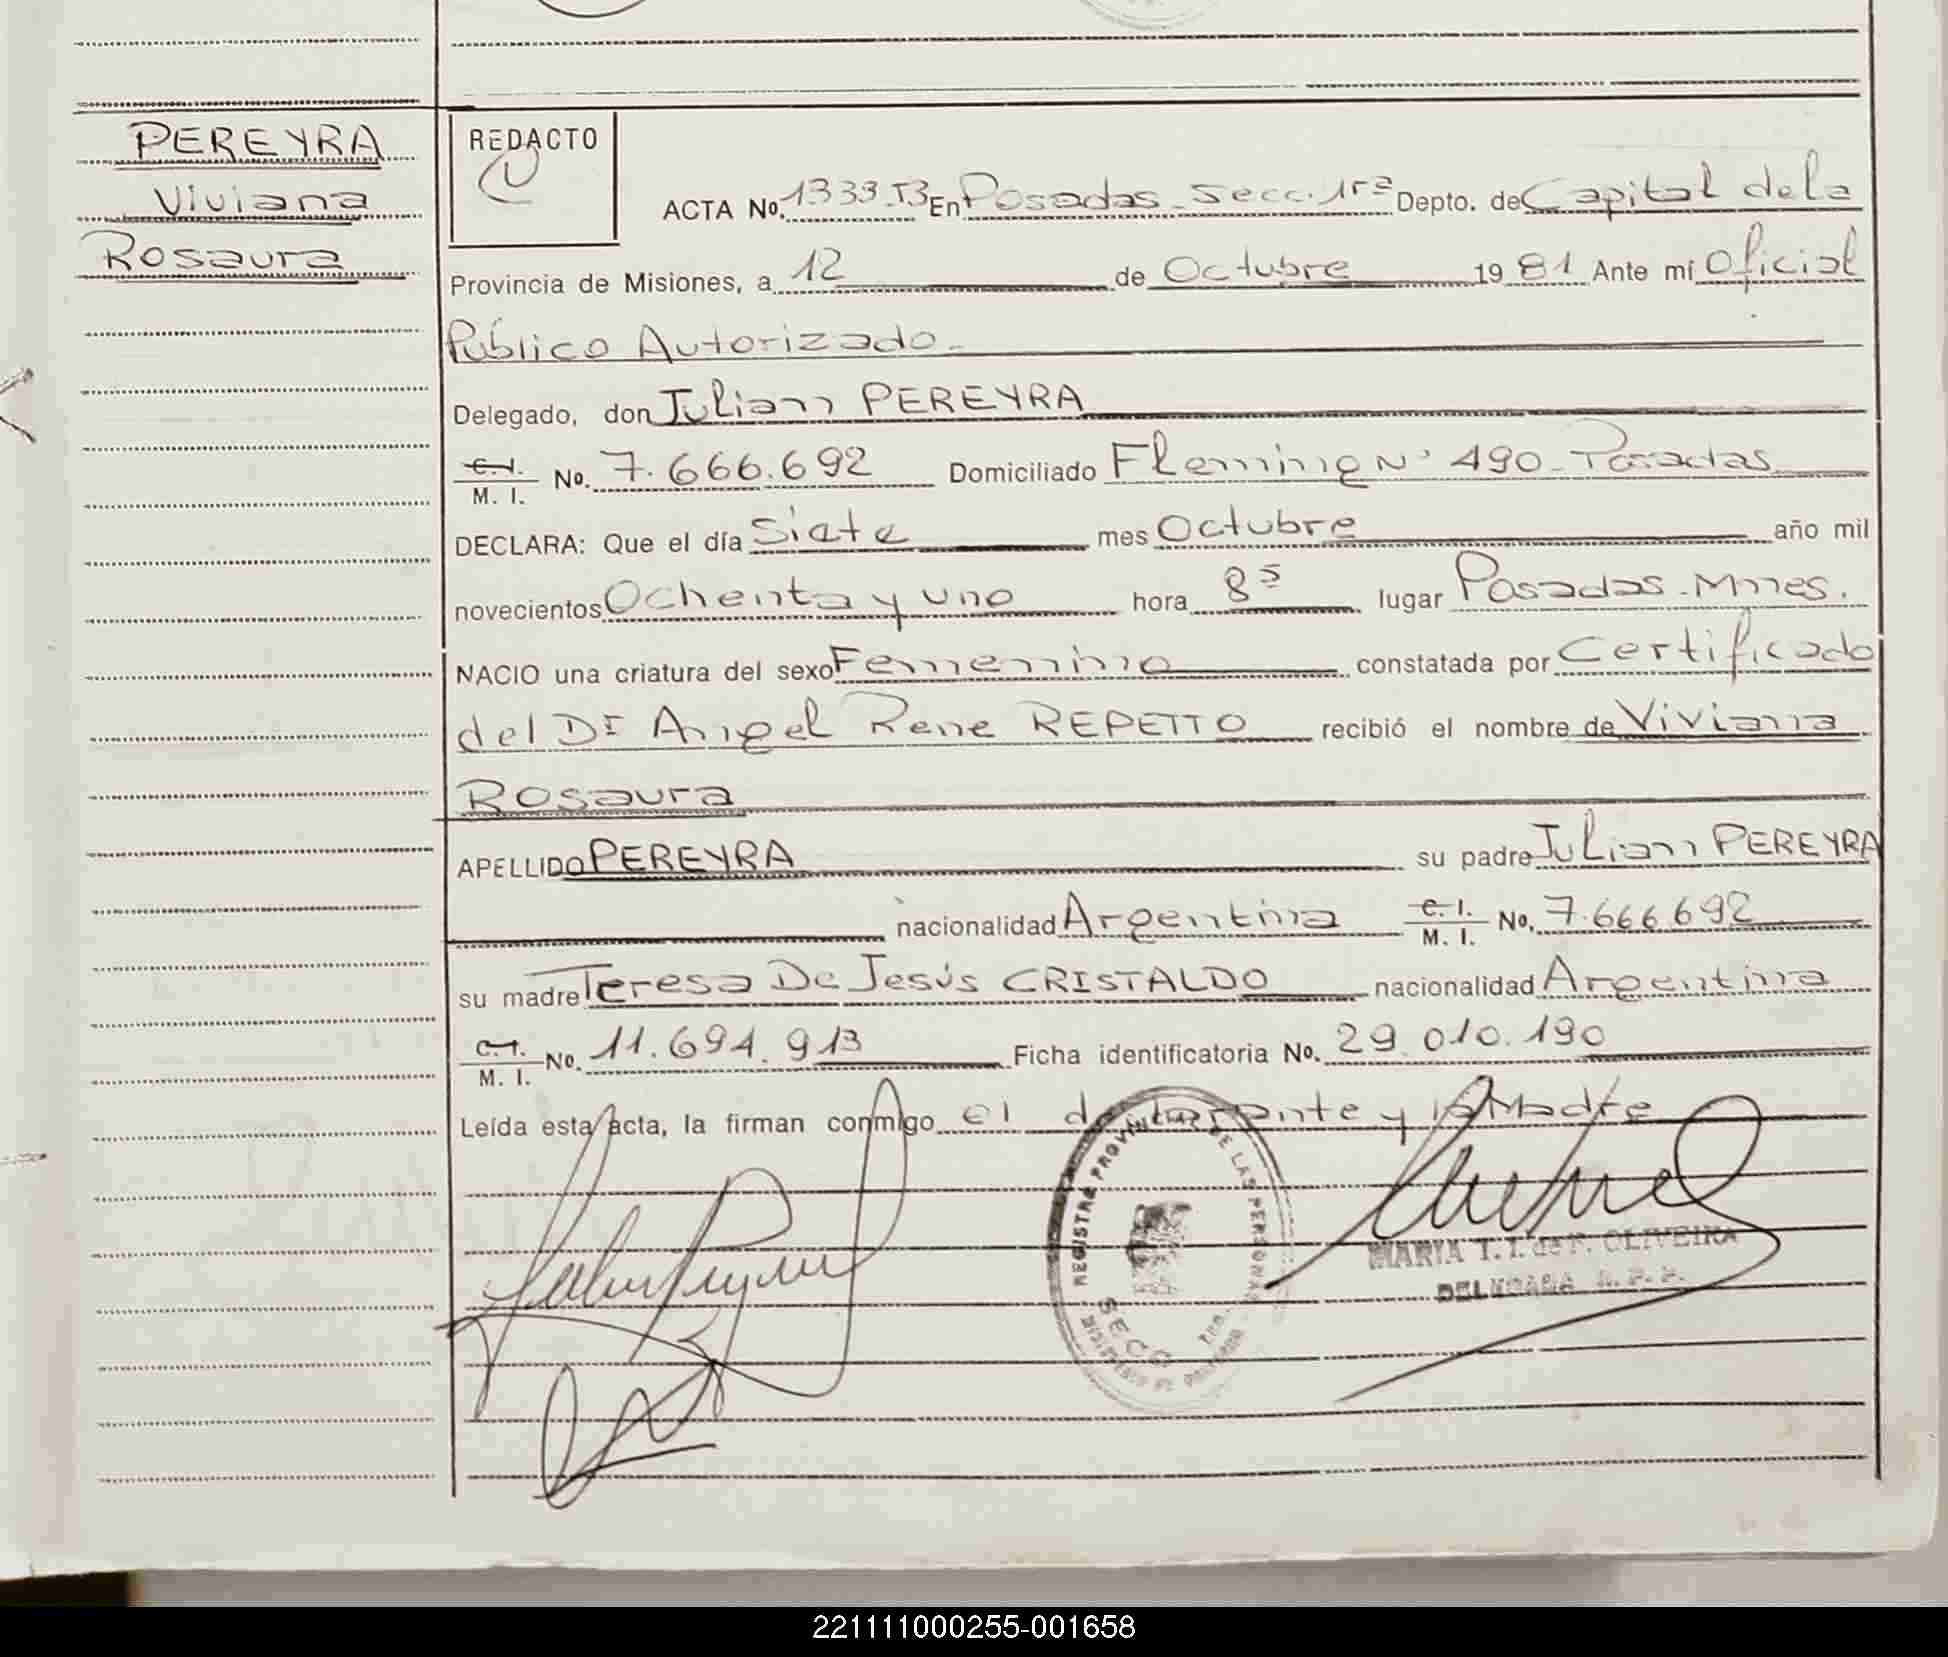 PEREYRA
Viviana
Rosaura
REDACTO
ACTA No. 1333.T3 En Posadas - Secc. 1ra Depto. de Capital de la
Provincia de Misiones, a 12 de Octubre 1981 Ante mí Oficial
Público Autorizado.-
Delegado, don Julian PEREYRA
C. I. / M. I. No. 7.666.692 Domiciliado Fleming Nº 490 - Posadas
DECLARA: Que el día Siete mes Octubre año mil
novecientos Ochenta y uno hora 8⁵ lugar Posadas - Mnes.
NACIO una criatura del sexo Femenino constatada por Certificado
del Dr Angel Rene REPETTO recibió el nombre de Viviana
Rosaura
APELLIDO PEREYRA su padre Julian PEREYRA
nacionalidad Argentina C. I. / M. I. No. 7.666.692
su madre Teresa De Jesús CRISTALDO nacionalidad Argentina
C. I. / M. I. No. 11.694.913 Ficha identificatoria No. 29.010.190
Leída esta acta, la firman conmigo el declarante y la Madre
REGISTRO PROVINCIAL DE LAS PERSONAS
SECC
OLIVEIRA
DELEGADA R. P. P.
221111000255-001658